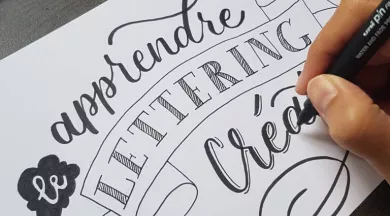 apprendre
le
LETTERING
Créa
uni pin